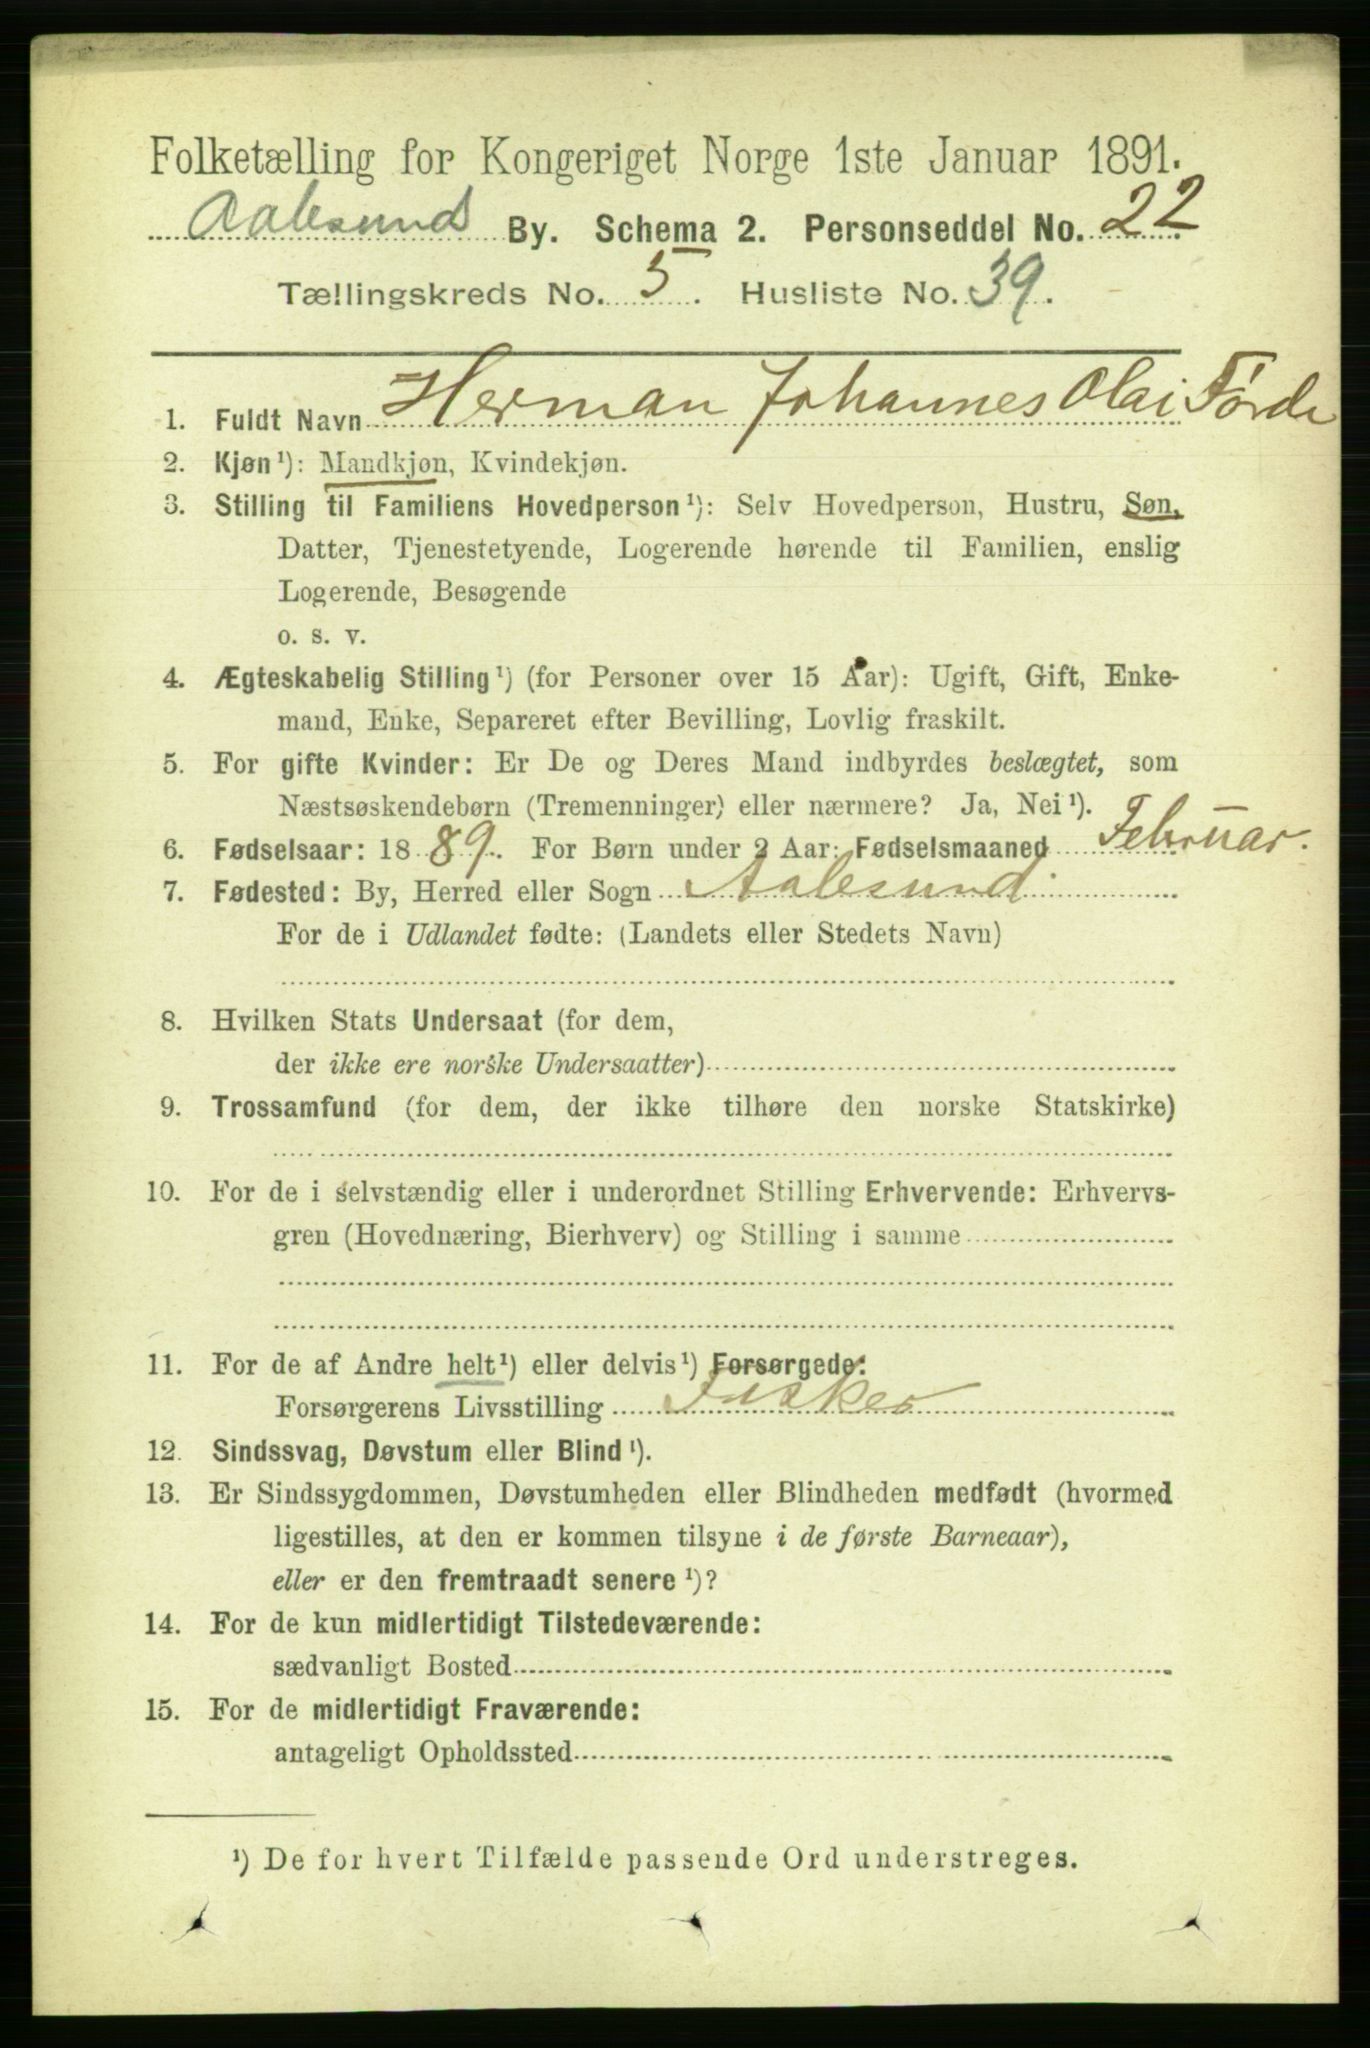 Folketælling for Kongeriget Norge 1ste Januar 1891.
Aalesund By. Schema 2. Personseddel No. 22
Tællingskreds No. 5. Husliste No. 39.
1. Fuldt Navn Herman Johannes Olai Førde
2. Kjøn¹): Mandkjøn, Kvindekjøn.
3. Stilling til Familiens Hovedperson¹): Selv Hovedperson, Hustru, Søn,
Datter, Tjenestetyende, Logerende hørende til Familien, enslig
Logerende, Besøgende
o. s. v.
4. Ægteskabelig Stilling¹) (for Personer over 15 Aar): Ugift, Gift, Enke-
mand, Enke, Separeret efter Bevilling, Lovlig fraskilt.
5. For gifte Kvinder: Er De og Deres Mand indbyrdes beslægtet, som
Næstsøskendebørn (Tremenninger) eller nærmere? Ja, Nei¹).
6. Fødselsaar: 1889. For Børn under 2 Aar: Fødselsmaaned Februar.
7. Fødested: By, Herred eller Sogn Aalesund
For de i Udlandet fødte: (Landets eller Stedets Navn)
8. Hvilken Stats Undersaat (for dem,
der ikke ere norske Undersaatter)
9. Trossamfund (for dem, der ikke tilhøre den norske Statskirke)
10. For de i selvstændig eller i underordnet Stilling Erhvervende: Erhvervs-
gren (Hovednæring, Bierhverv) og Stilling i samme
11. For de af Andre helt¹) eller delvis¹) Forsørgede:
Forsørgerens Livsstilling Fisker
12. Sindssvag, Døvstum eller Blind¹).
13. Er Sindssygdommen, Døvstumheden eller Blindheden medfødt (hvormed
ligestilles, at den er kommen tilsyne i de første Barneaar),
eller er den fremtraadt senere¹)?
14. For de kun midlertidigt Tilstedeværende:
sædvanligt Bosted
15. For de midlertidigt Fraværende:
antageligt Opholdssted
¹) De for hvert Tilfælde passende Ord understreges.